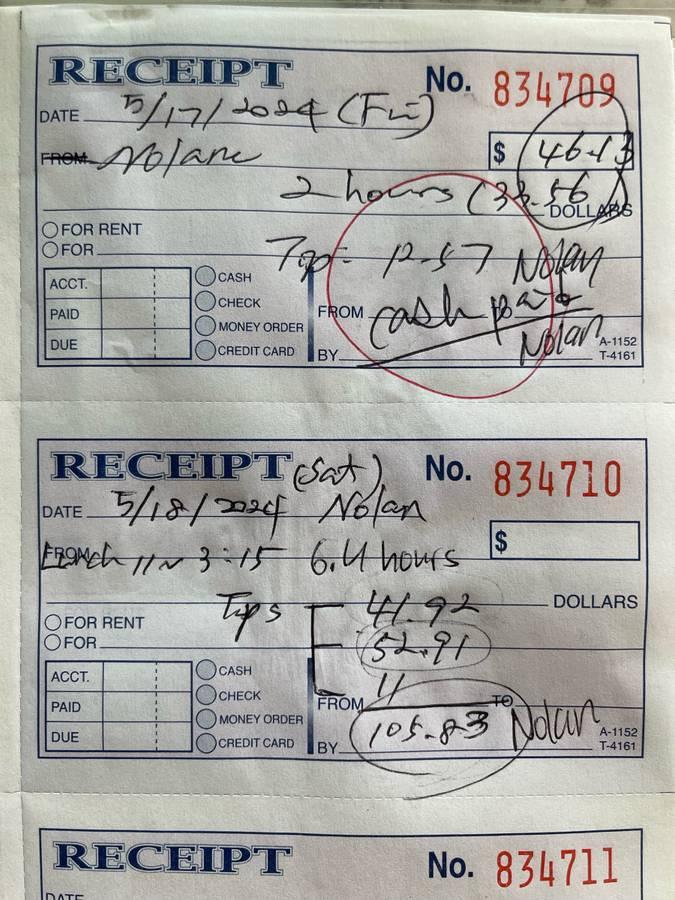 RECEIPT No. 834709
DATE 5/17/2024 (Fri)
FROM Nolan $ 46.13
2 hours (33.56)
DOLLARS
FOR RENT
FOR
Tip = 12.57 Nolan
ACCT.
PAID
DUE
CASH
CHECK
MONEY ORDER
CREDIT CARD
FROM cash paid
BY Nolan
A-1152
T-4161
RECEIPT (Sat) No. 834710
DATE 5/18/2024 Nolan
$
FROM Lunch 11~3:15 6.4 hours
Tips 41.92 DOLLARS
FOR RENT
FOR
52.91
11
ACCT.
PAID
DUE
CASH
CHECK
MONEY ORDER
CREDIT CARD
FROM TO
BY 105.83 Nolan
A-1152
T-4161
RECEIPT No. 834711
DATE